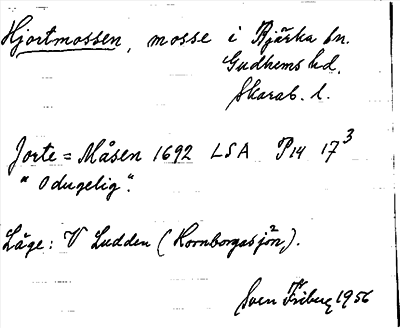 Hjortmossen, mosse i Bjärka sn.
Gudhems hd.
Skarab. l.
Jorte = Måsen 1692 LSA P14 17³
"Odugelig".
Läge: V Ludden (Hornborgasjön).
Sven Friberg 1956